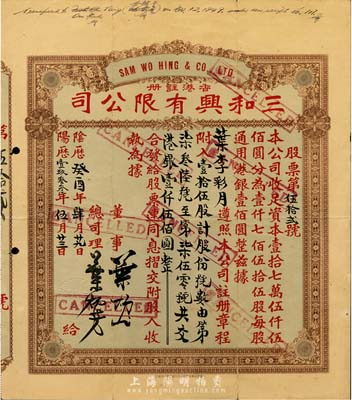 SAM WO HING & CO., LTD.
香港註册
三和興有限公司
股票第伍拾貳號
本公司收足資本壹拾七萬伍仟伍
佰圓分為壹仟七佰伍拾伍股每股
通用港銀壹佰圓整茲據
葉李彩月遵照本公司註册章程
附入壹拾伍股計股份號數由第
柒叁陸號至第柒伍零號共交
港銀壹仟伍佰圓整
合發給股票連同息摺交附股人收
執為據
董事
總司理
陰曆癸酉年肆月廿九日
陽曆壹玖叁叁年伍月廿三日
給
CANCELLED
CANCELLED
上海陽明拍賣